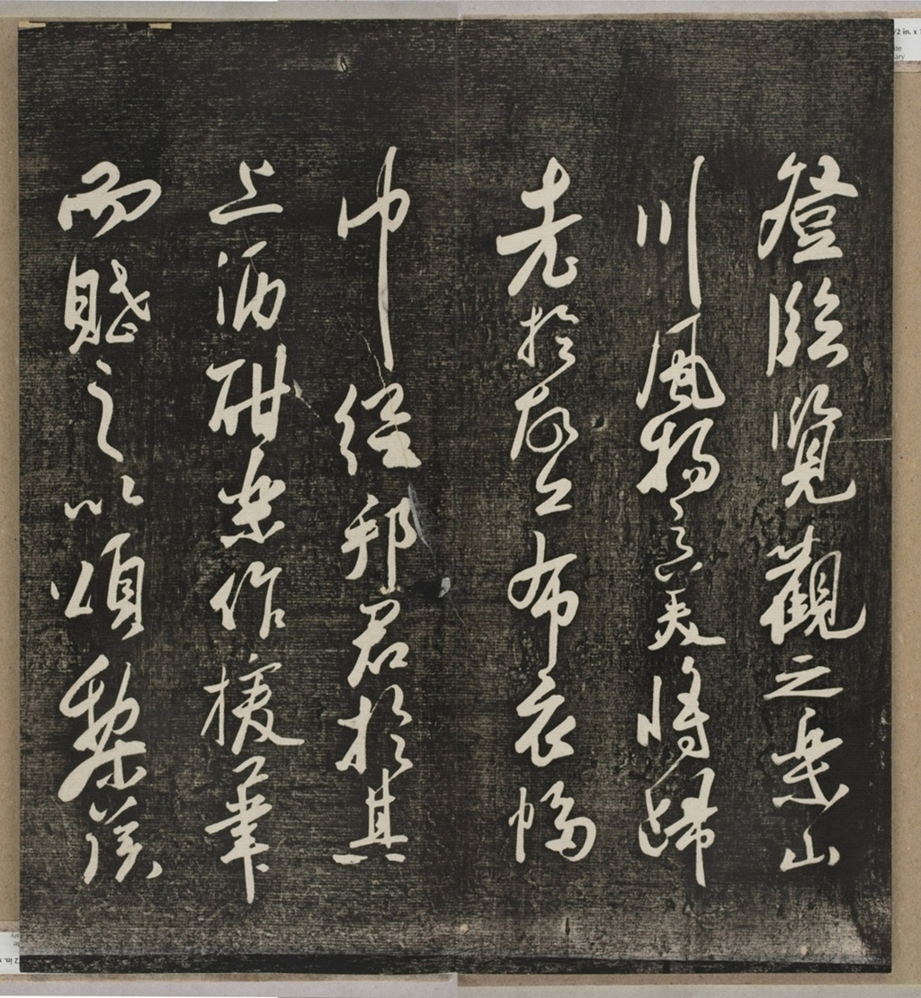 登臨覽觀之樂山
川風物之美將歸
老於故丘布衣幅
巾從邦君於其
上酒酣樂作援筆
而賦之以頌黎侯